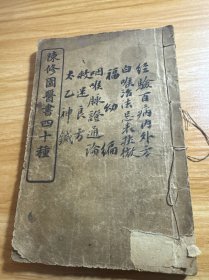 陳修園醫書四十種
經驗百病內外方
白喉治法忌表抉微
福幼編
咽喉脉證通論
救迷良方
太乙神鍼